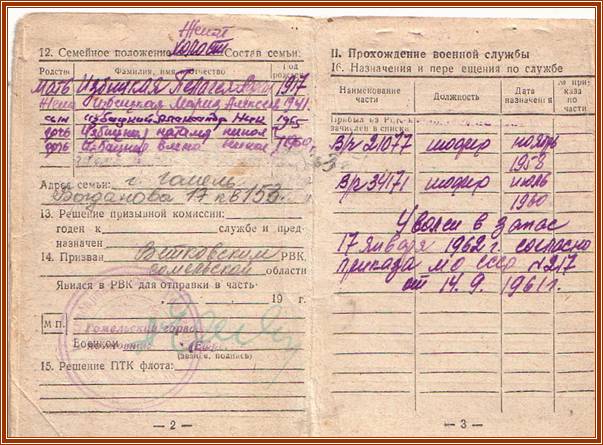 Женат
12. Семейное положение холост Состав семьи:
Фамилия, имя, отчество Год
мать Избицкая 1917
Жена Избицкая Мария Алексеев 941.
сын Избицкий Александр Ник 1965
дочь Избицкая Наталия Никол
дочь Избицкая Елена Никол 1960
Адрес семьи: г. Гомель
Богданова 17 кв 153
13. Решение призывной комиссии:
годен к службе и пред-
назначен
14. Призван Ветковским РВК,
Гомельской области
Явился в РВК для отправки в часть
19 г.
М П. Гомельский горво
Военком
(звание, подпись)
15. Решение ПТК флота:
— 2 —
II. Прохождение военной службы
16. Назначения и пере ещения по службе
Наименование части Должность Дата назначения № при каза по части
Прибыл из РВК
зачислен в списки
В/ч 21077 шофер ноябрь
1958
В/ч 34171 шофер июль
1960
Уволен в запас
17 января 1962 г. согласно
приказа МО СССР №217
от 14.9. 1961 г.
— 3 —